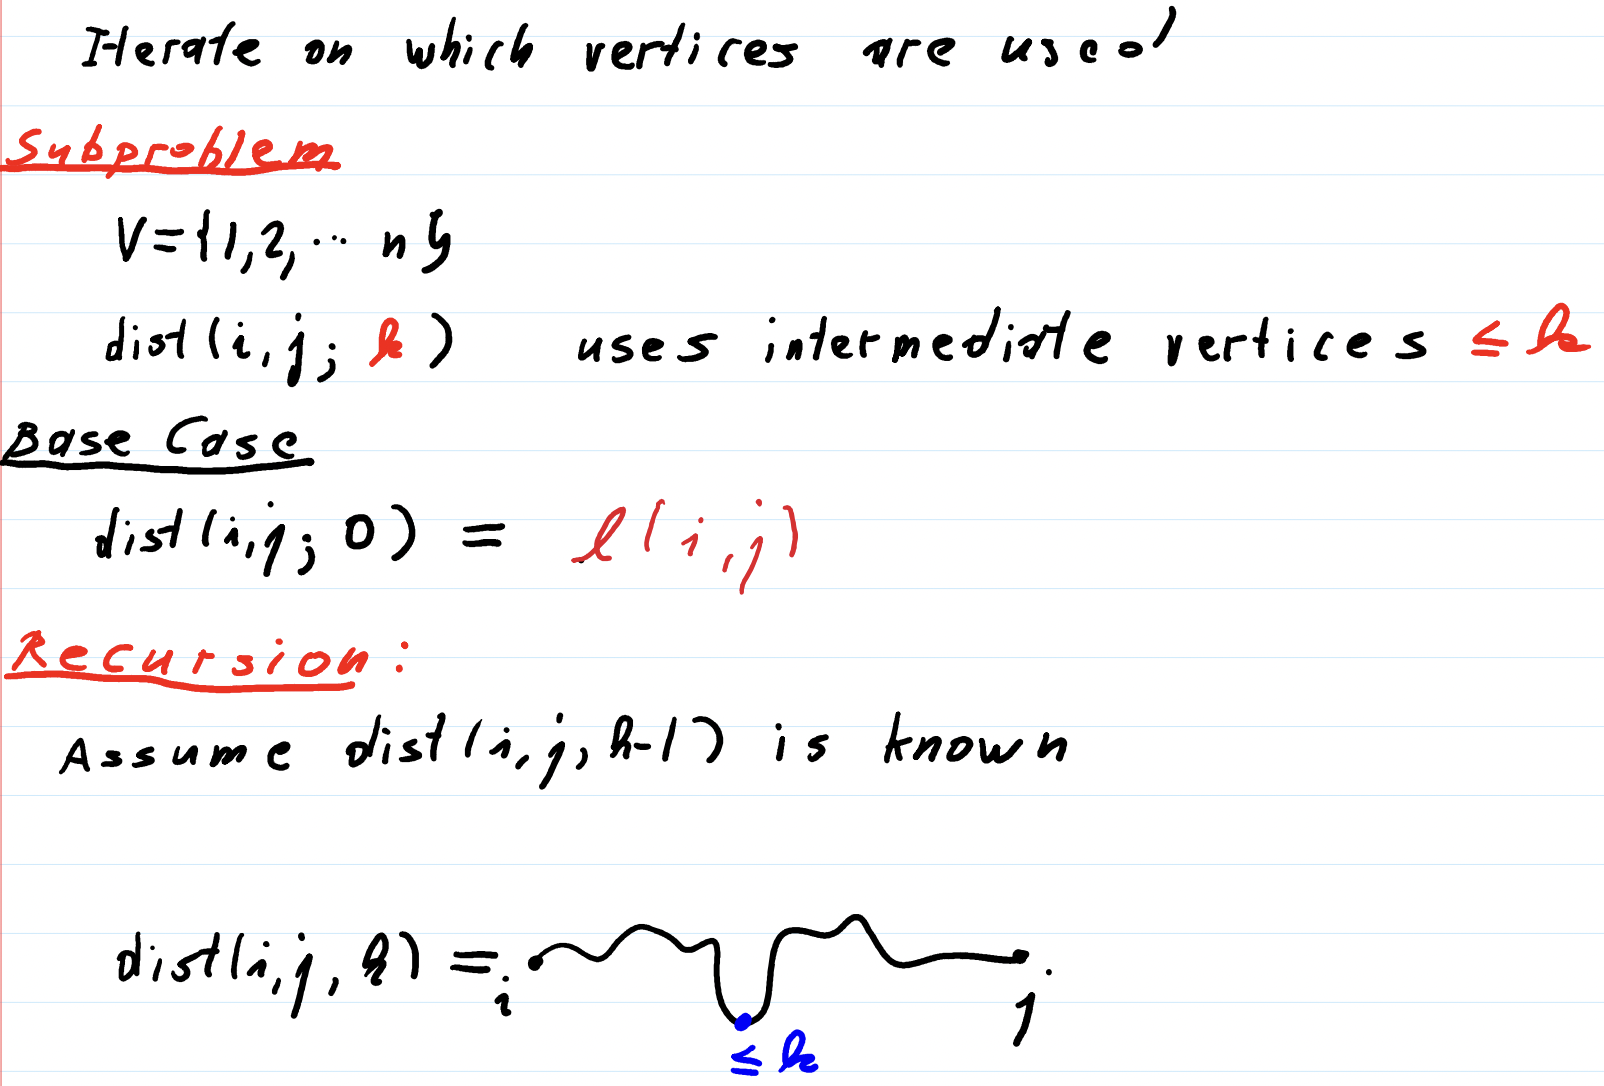 Iterate on which vertices are used
Subproblem
V={1,2,... n}
dist(i,j; k) uses intermediate vertices ≤ k
Base Case
dist(i,j; 0) = l(i,j)
Recursion:
Assume dist(i,j,k-1) is known
dist(i,j,k) = i j
≤ k